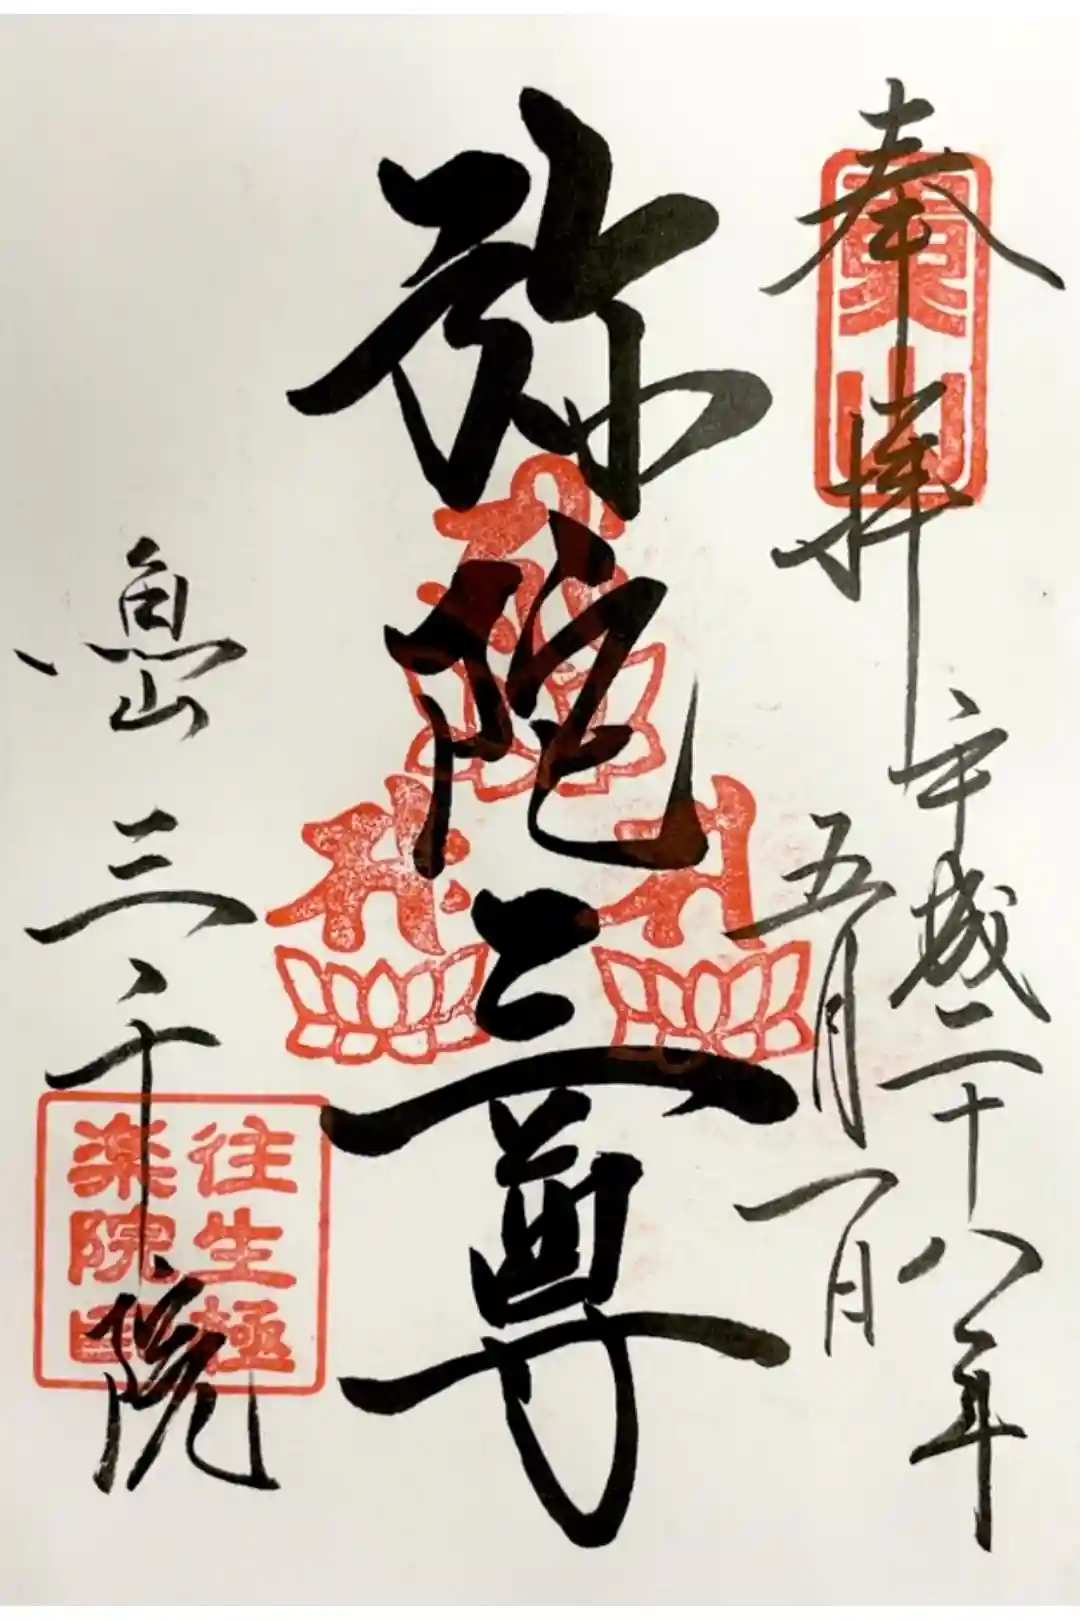 奉拝
東山
平成二十八年
五月一日
弥陀三尊
魚山 三千院
往生極
楽院